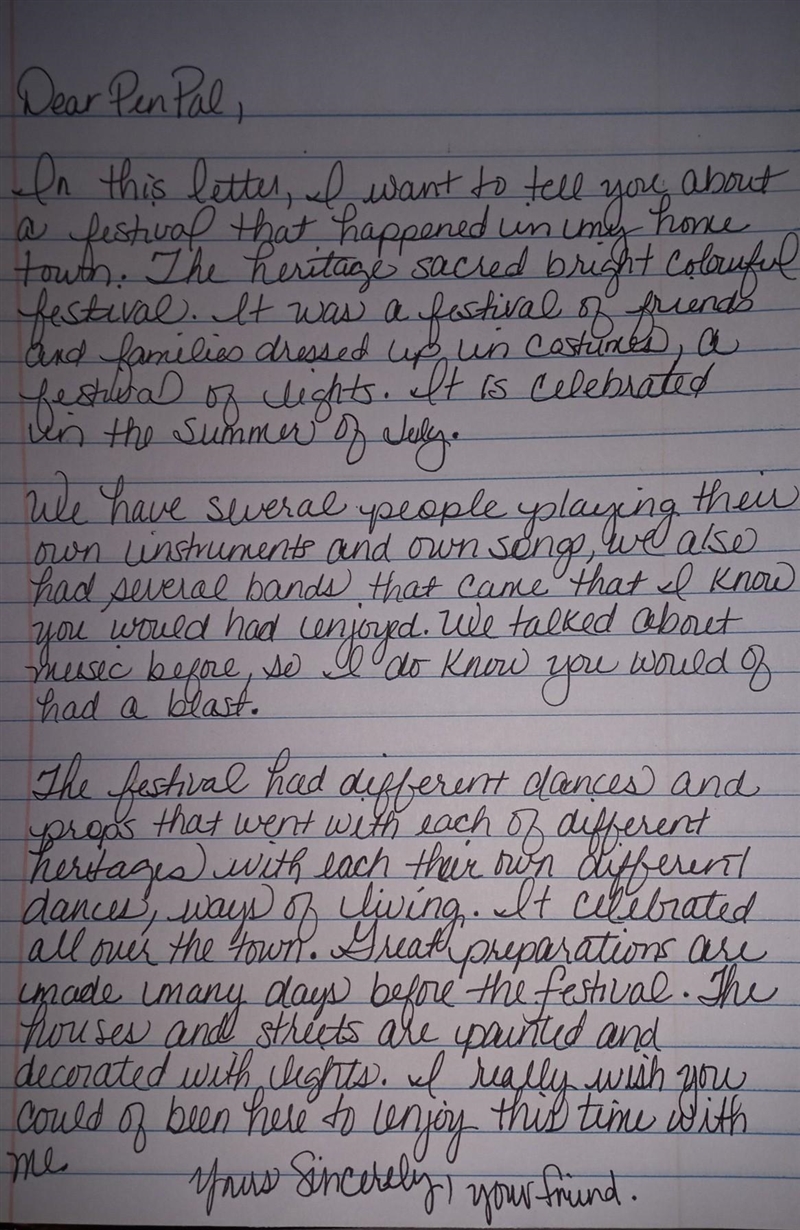 Dear Pen Pal,
In this letter, I want to tell you about
a festival that happened in my home
town. The heritage sacred bright colourful
festival. It was a festival of friends
and families dressed up in costumes, a
festival of lights. It is celebrated
in the summer of July.
We have several people playing their
own instruments and own songs, we also
had several bands that came that I know
you would had enjoyed. We talked about
music before, so I do know you would of
had a blast.
The festival had different dances and
props that went with each of different
heritages with each their own different
dances, ways of living. It celebrated
all over the town. Great preparations are
made many days before the festival. The
houses and streets are painted and
decorated with lights. I really wish you
could of been here to enjoy this time with
me.
Yours Sincerely, your friend.